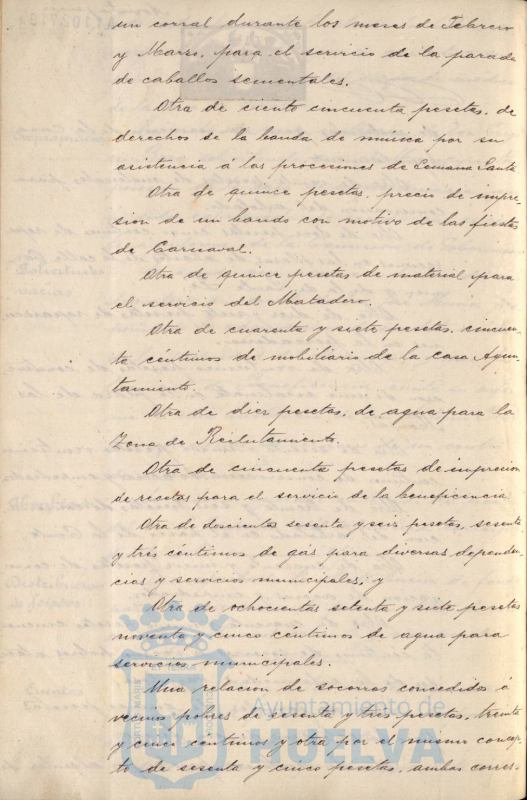 un corral durante los meses de Febrero
y Marzo, para el servicio de la parada
de caballos sementales.
Otra de ciento cincuenta pesetas, de
derechos de la banda de música por su
asistencia á las procesiones de Semana Santa
Otra de quince pesetas, precio de impre-
sion de un bando con motivo de las fiestas
de Carnaval.
Otra de quince pesetas de material para
el servicio del Matadero.
Otra de cuarenta y siete pesetas, cincuen-
ta céntimos de mobiliario de la casa Ayun-
tamiento.
Otra de diez pesetas, de agua para la
Zona de Reclutamiento.
Otra de cincuenta pesetas de impresion
de recetas para el servicio de la beneficencia
Otra de doscientas sesenta y seis pesetas, sesenta
y trés céntimos de gás para diversas dependen-
cias y servicios municipales, y
Otra de ochocientas setenta y siete pesetas
noventa y cinco céntimos de agua para
servicios municipales.
Una relacion de socorros concedidos á
vecinos pobres de sesenta y trés pesetas, treinta
y cinco centimos y otra por el mismo concep-
to de sesenta y cinco pesetas, ambas corres-
Ayuntamiento de
HUELVA